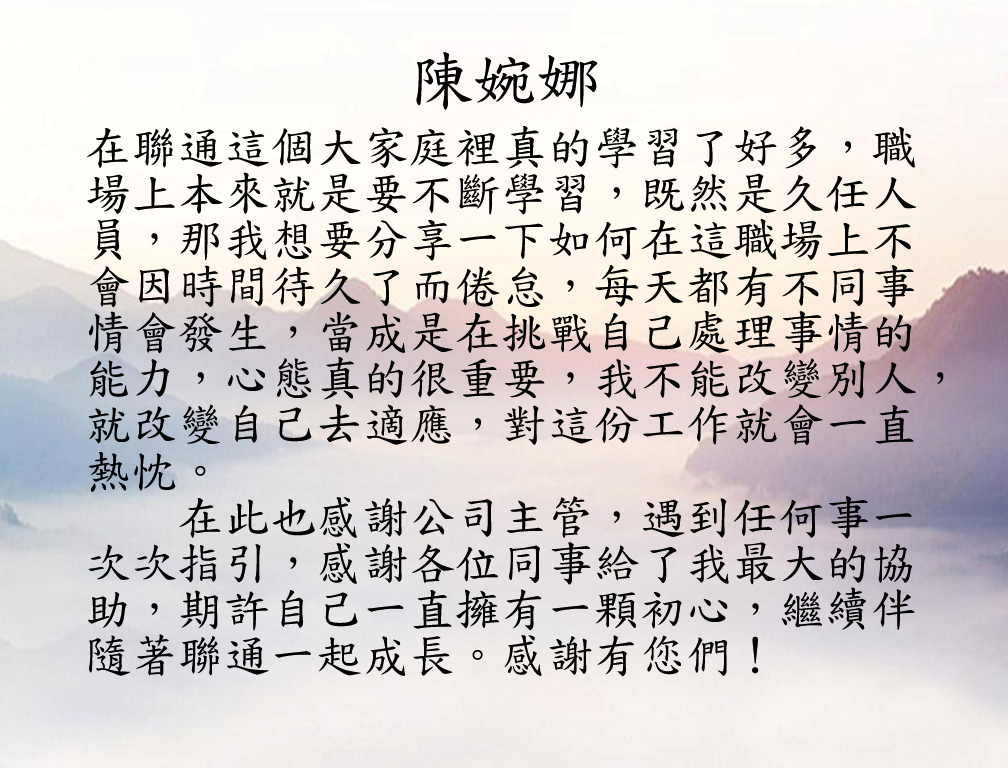 陳婉娜
在聯通這個大家庭裡真的學習了好多，職
場上本來就是要不斷學習，既然是久任人
員，那我想要分享一下如何在這職場上不
會因時間待久了而倦怠，每天都有不同事
情會發生，當成是在挑戰自己處理事情的
能力，心態真的很重要，我不能改變別人，
就改變自己去適應，對這份工作就會一直
熱忱。
在此也感謝公司主管，遇到任何事一
次次指引，感謝各位同事給了我最大的協
助，期許自己一直擁有一顆初心，繼續伴
隨著聯通一起成長。感謝有您們！